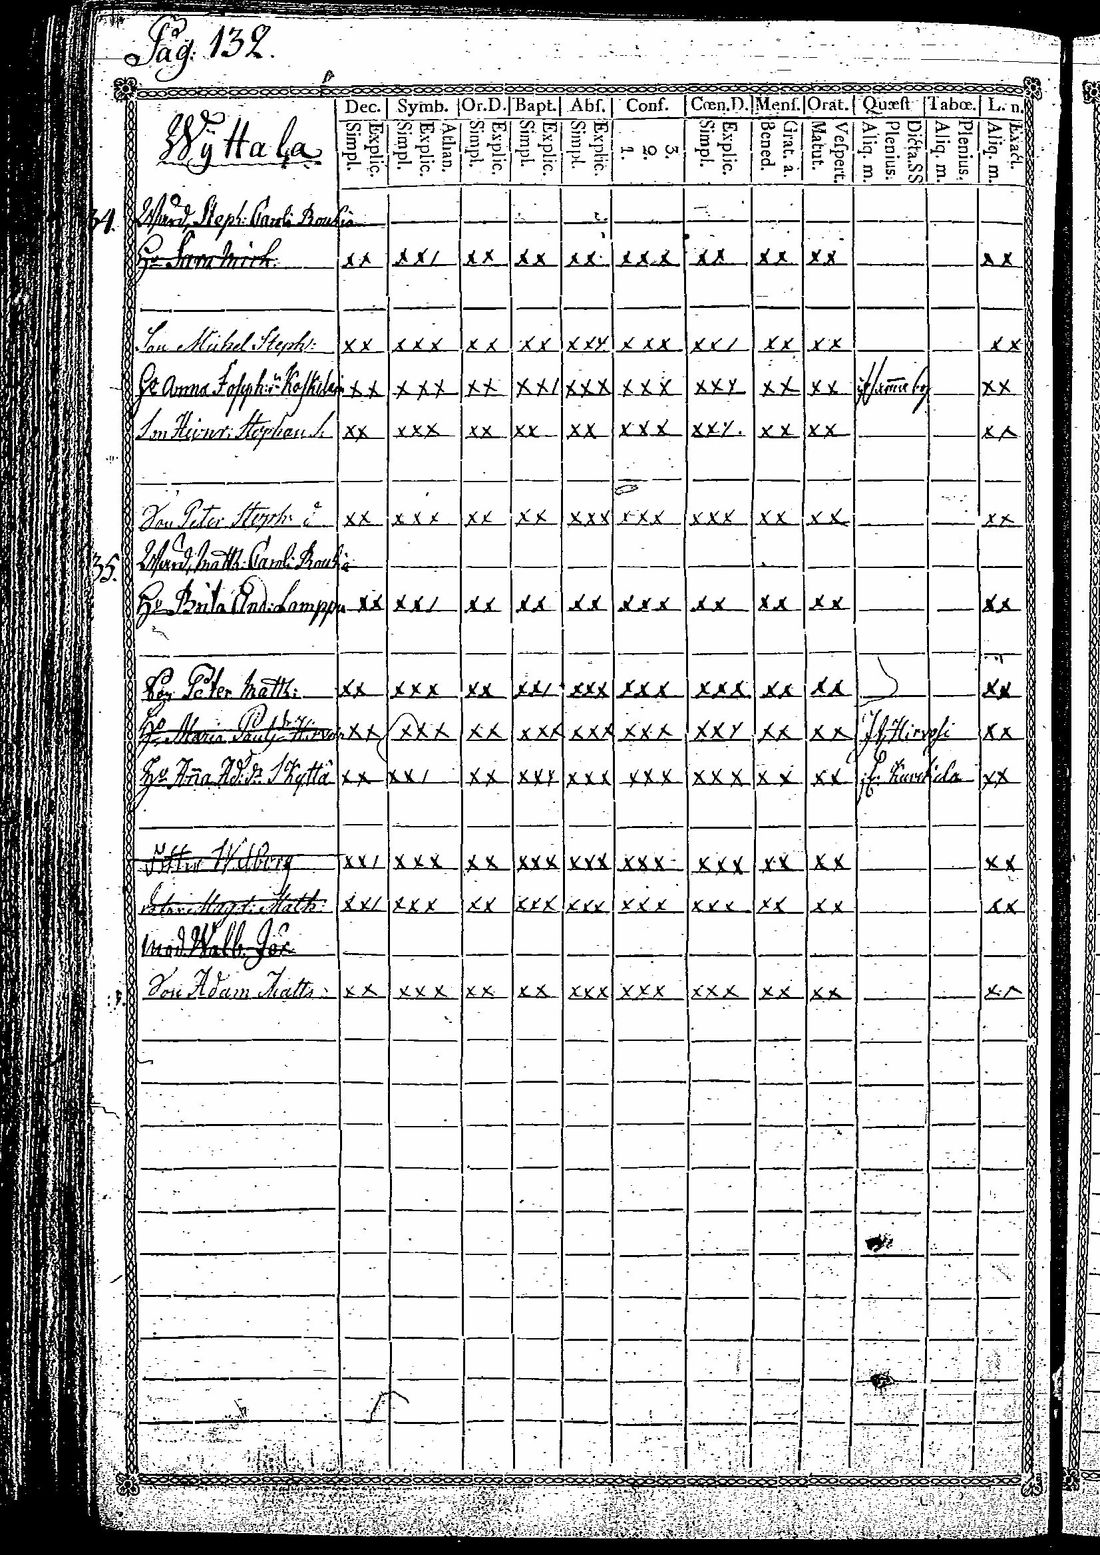 Pag. 132.
Dec. Symb. Or.D. Bapt. Abs. Conf. Cœn.D. Mens. Orat. Quæst Tabœ. L. n.
Simpl. Explic. Simpl. Explic. Athan. Simpl. Explic. Simpl. Explic. Simpl. Explic. 1. 2. 3. Simpl. Explic. Bened. Grat. a. Matut. Vespert. Aliq. m. Plenius. Dicta.SS Aliq. m. Plenius. Aliq. m. Exact.
Wÿttala
34. Wärd. Steph: Caroli
Hu Sara Mich. xx xx/ xx xx xx xxx xx xx xx xx
Son Michel Steph: xx xxx xx xx xxy xxx xx/ xx xx xx
Hu Anna Joseph: xx xxx xx xx/ xxx xxx xxy xx xx xx
Son Henr: Stephan xx xxx xx xx xx xxx xxy. xx xx xx
Son Peter Steph: xx xxx xx xx xxx xxx xxx xx xx xx
35. Wärd. Matth: Caroli
Hu Brita And: Lamppu xx xx/ xx xx xx xxx xx xx xx xx
Son Peter Matth: xx xxx xx xx/ xxx xxx xxx xx xx xx
Hu Maria xx xxx xx xxx xxx xxx xxy xx xx Hirvosi xx
Hu Anna Ad: dr Skyttä xx xx/ xx xxy xxx xxx xxx xx xx xx
Petter Wilborg xx/ xxx xx xxx xxx xxx xxx xx xx xx
Magd: Math: xx/ xxx xx xxx xxx xxx xxx xx xx xx
Walb.
Son Adam Matts: xx xxx xx xx xxx xxx xxx xx xx xx